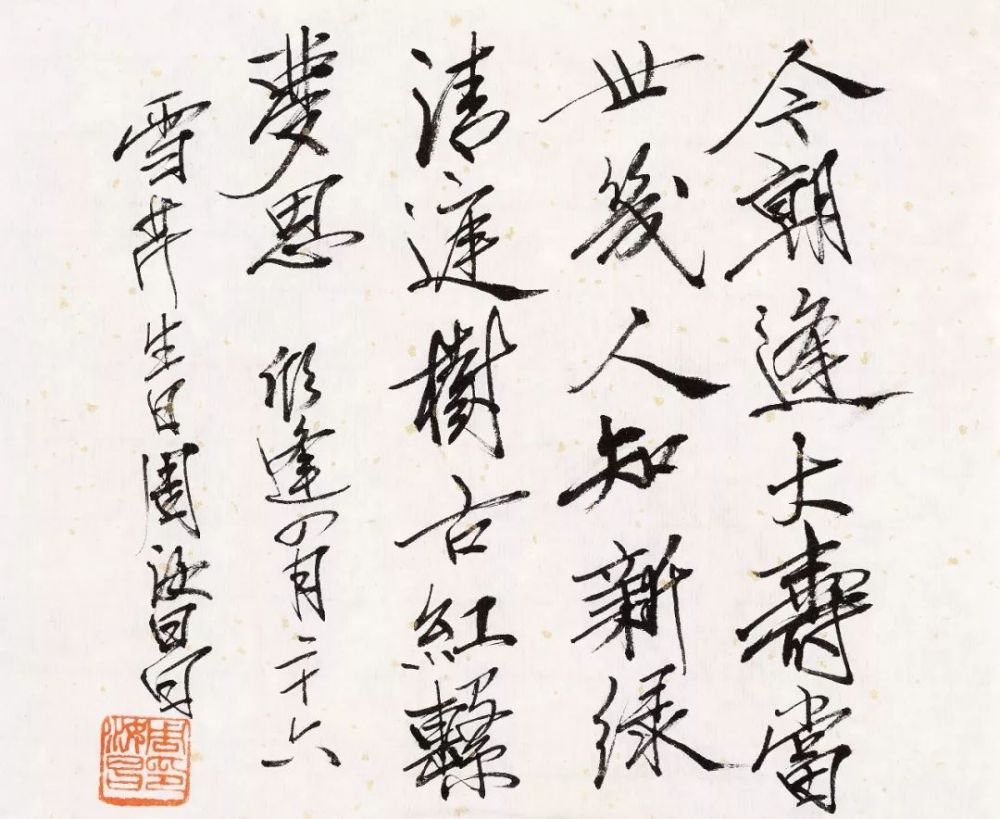 今朝逢大壽當
世幾人知新綠
清庭樹古紅繫
夢思 欣逢四月二十六
雪芹生日周汝昌
周印汝昌